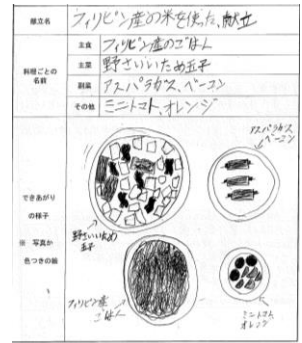 献立名 フィリピン産の米を使った、献立
料理ごとの名前
主食 フィリピン産のごはん
主菜 野さいいため玉子
副菜 アスパラガス、ベーコン
その他 ミニトマト、オレンジ
できあがりの様子
※ 写真か色つきの絵
アスパラガス
ベーコン
野さいいため
玉子
フィリピン産
ごはん
ミニトマト
オレンジ